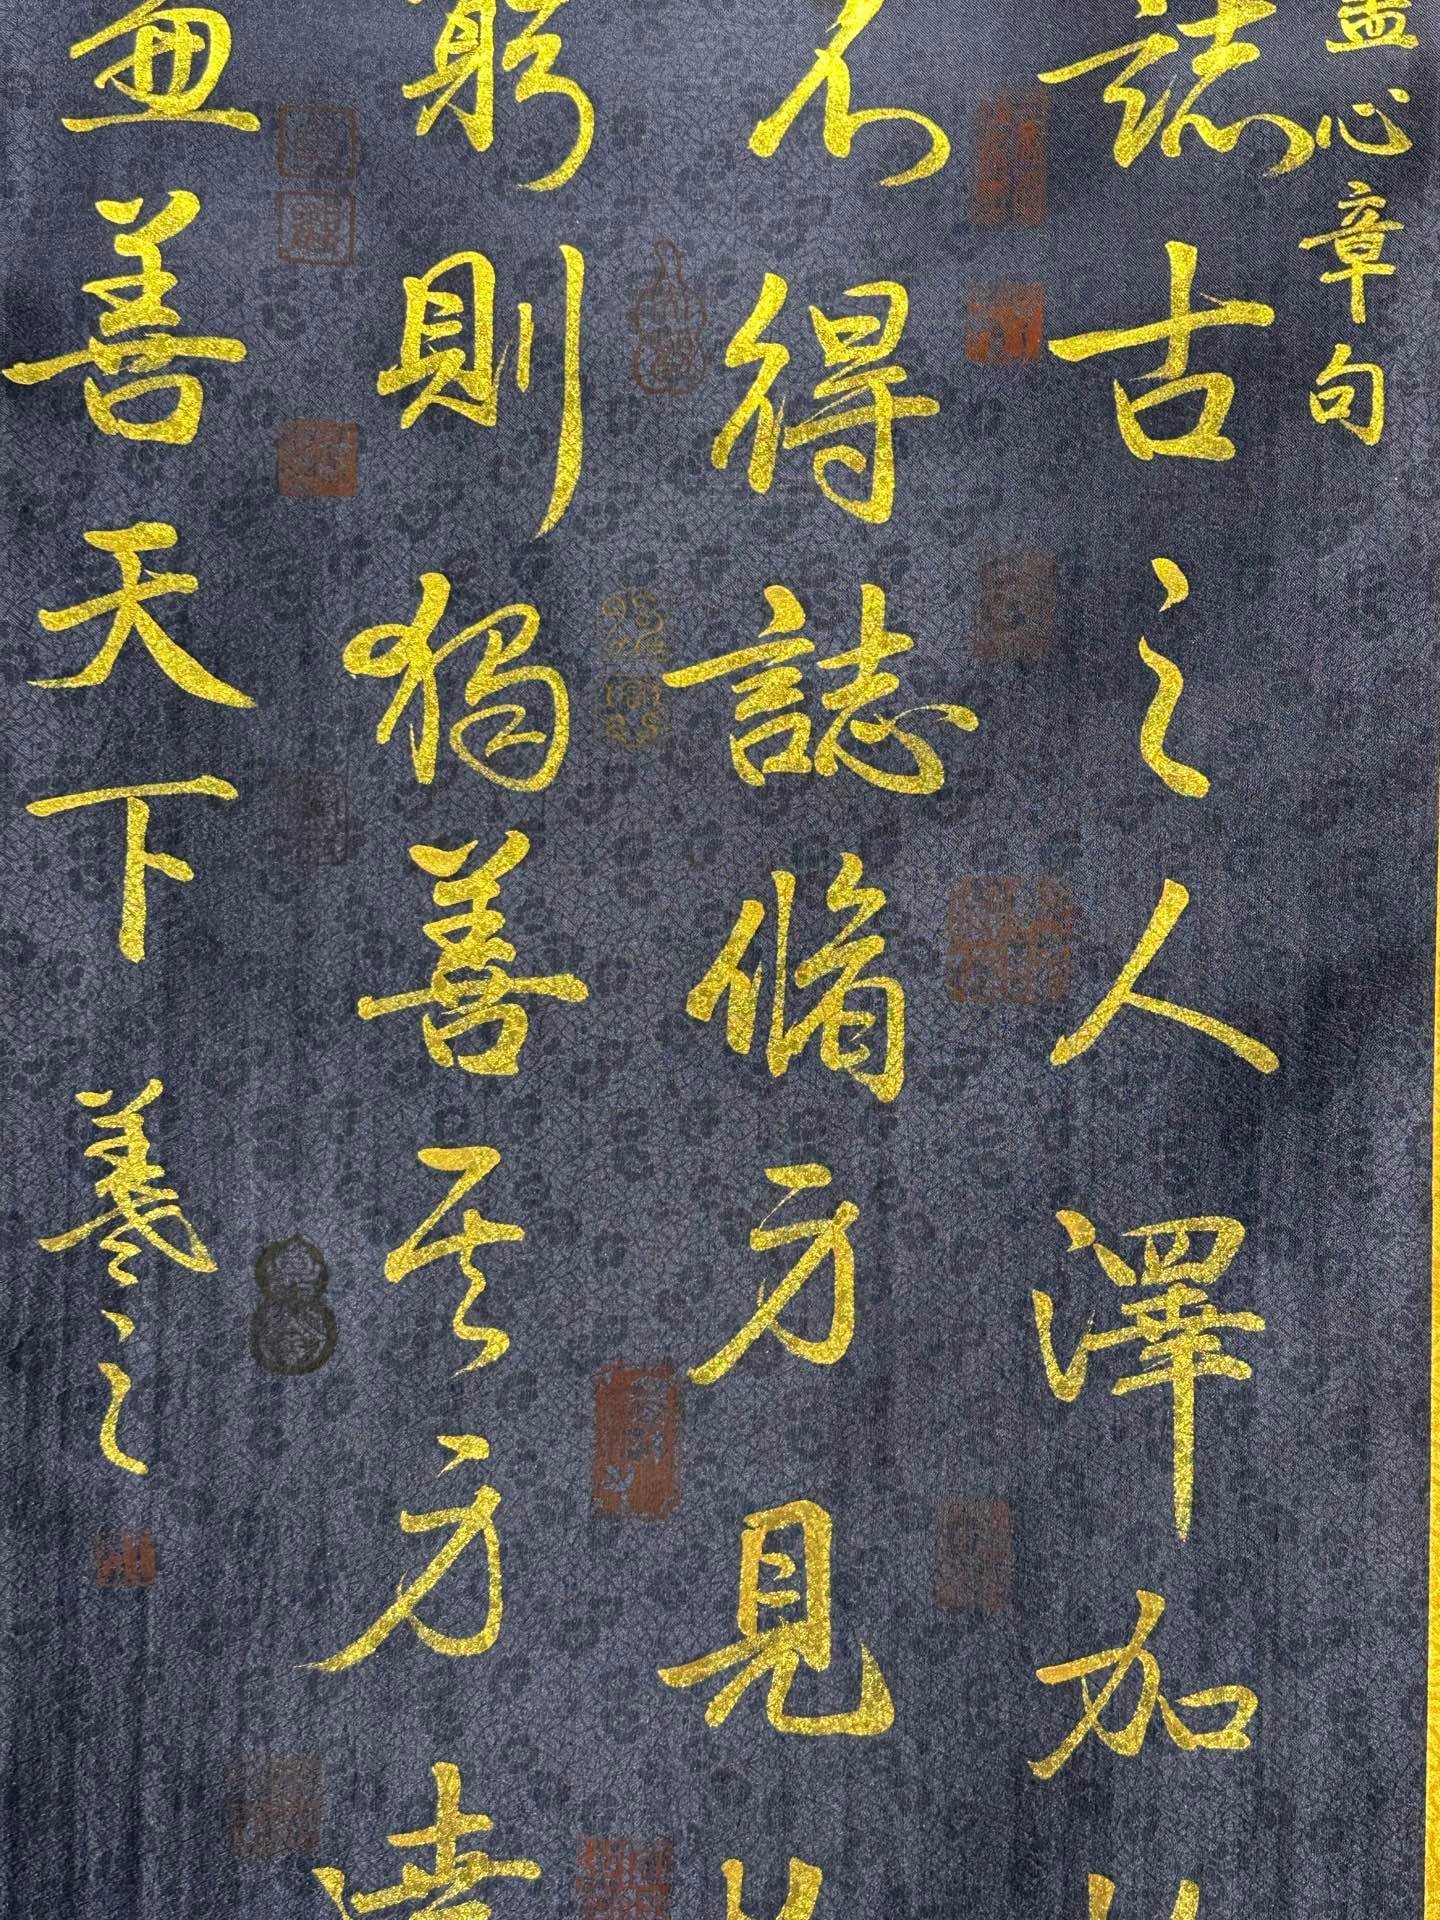 盡心章句
誌古之人澤加
不得誌脩身見
窮則獨善其身達
兼善天下
羲之